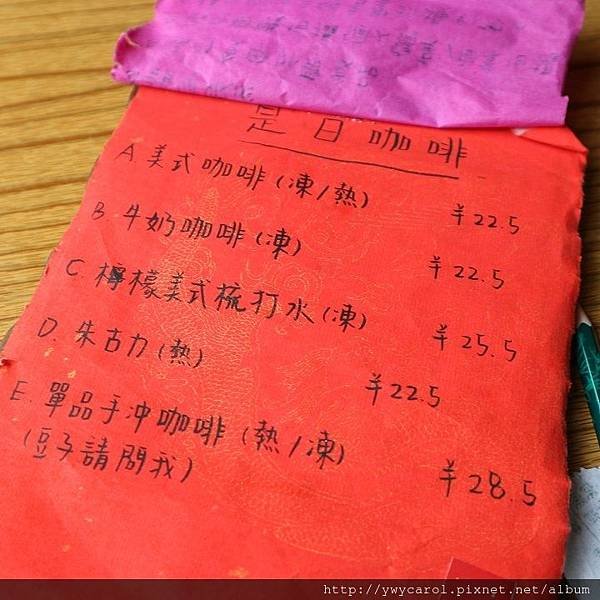 是日咖啡
A. 美式咖啡(凍/熱) ¥22.5
B. 牛奶咖啡(凍) ¥22.5
C. 檸檬美式梳打水(凍) ¥25.5
D. 朱古力(熱) ¥22.5
E. 單品手沖咖啡(熱/凍) ¥28.5
(豆子請問我)
http://ywycarol.pixnet.net/album